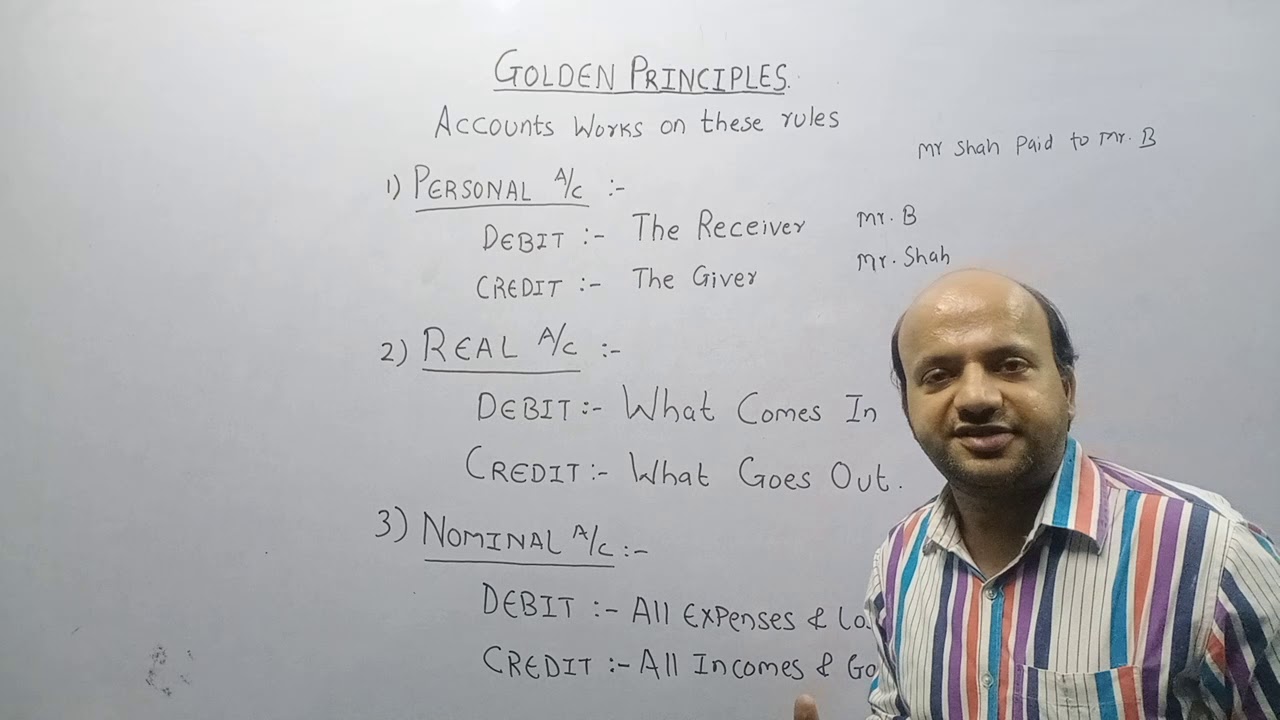 GOLDEN PRINCIPLES.
Accounts Works on these rules
Mr Shah Paid to Mr. B
1) PERSONAL A/C :-
DEBIT :- The Receiver Mr. B
CREDIT :- The Giver Mr. Shah
2) REAL A/C :-
DEBIT :- What Comes In
CREDIT :- What Goes Out.
3) NOMINAL A/C :-
DEBIT :- All Expenses &
CREDIT :- All Incomes &